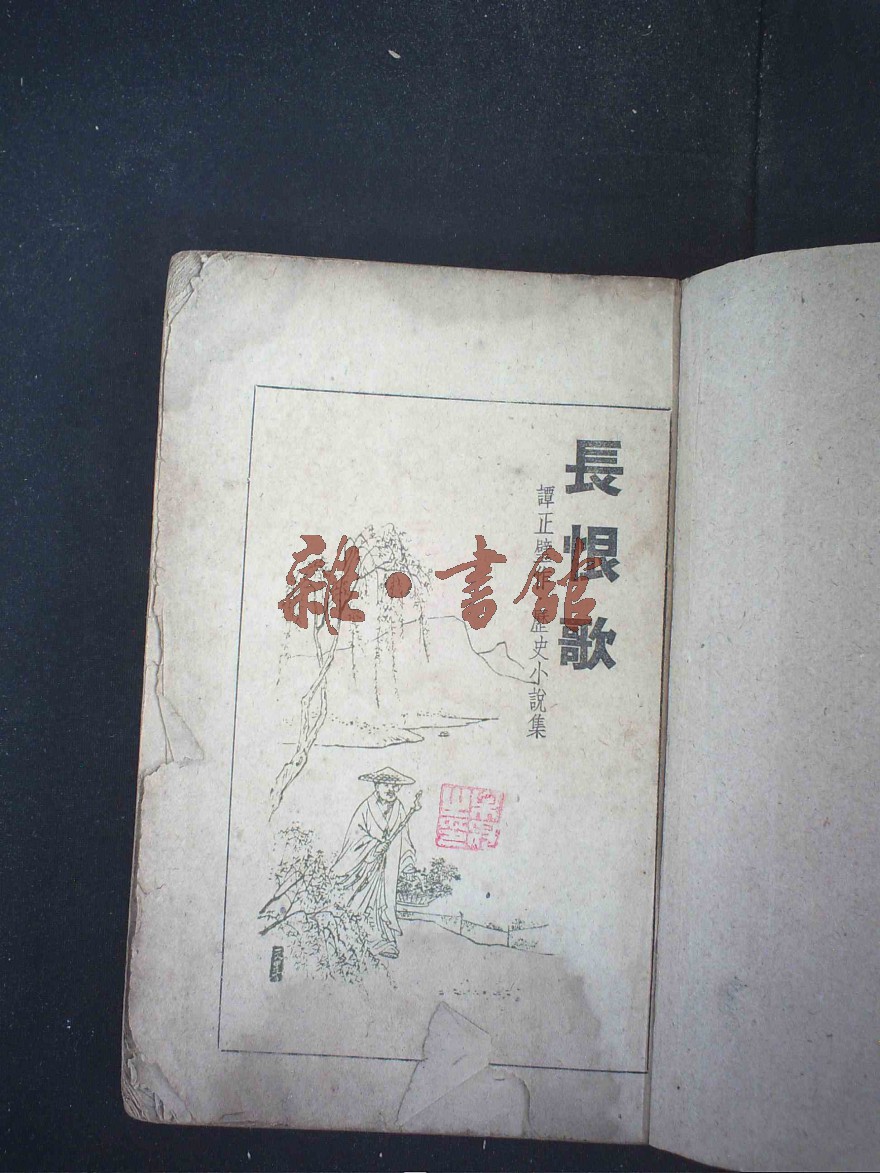 長恨歌
譚正璧作 歷史小說集
雜·書館